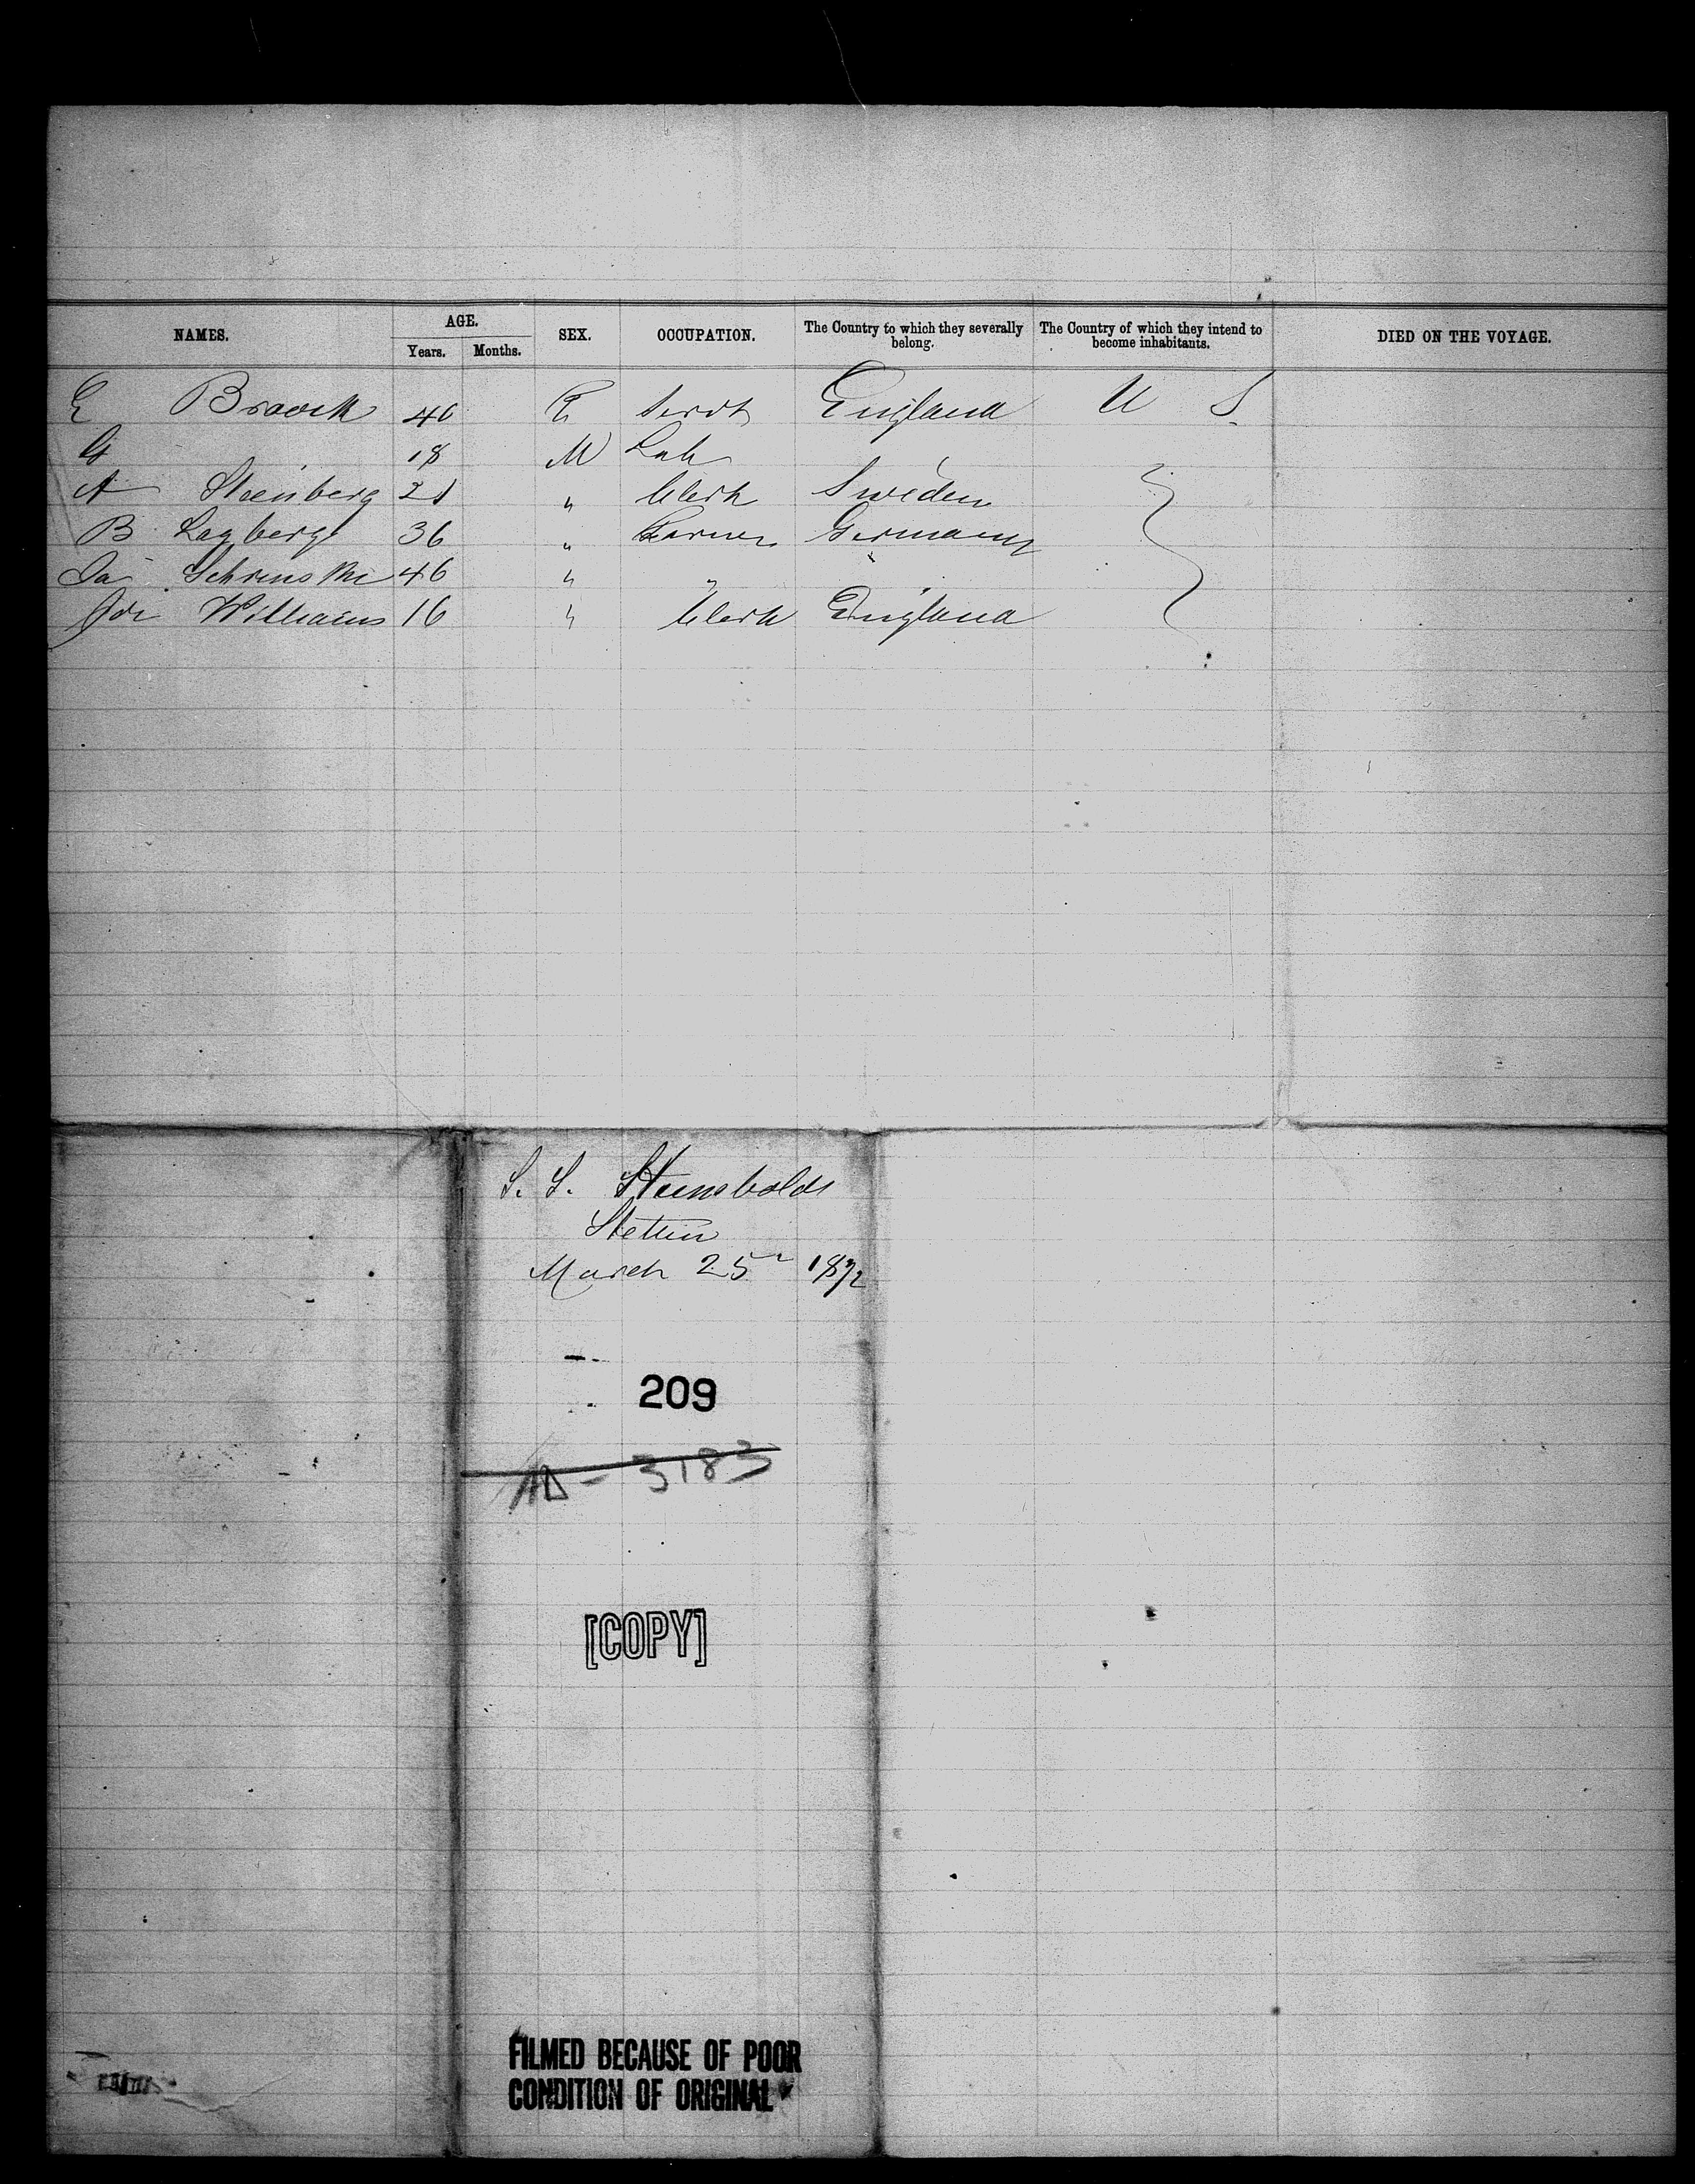 NAMES. AGE. SEX. OCCUPATION. The Country to which they severally belong. The Country of which they intend to become inhabitants. DIED ON THE VOYAGE.
Years. Months.
E 40 England U S
G 18 M Lab
A Steinberg 21 " Clerk Sweden
B Lagberg 36 " Farmer Germany
46 " "
Williams 16 " Clerk England
S. S.
Stettin
March 25 1872
209
AD - 3183
[COPY]
FILMED BECAUSE OF POOR
CONDITION OF ORIGINAL